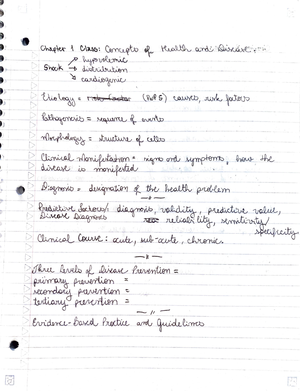 Chapter 1 Class: Concepts of Health and Disease
hypovolemic
Shock → distribution
cardiogenic
Etiology = causes, risk factors
Pathogenesis = sequence of events
Morphology = structure of cells
Clinical Manifestation = signs and symptoms, how the
disease is manifested
Diagnosis = designation of the health problem
Predictive Factors/ diagnosis, validity, predictive value,
Disease Diagnosis reliability, sensitivity/
specificity
Clinical Course: acute, sub-acute, chronic
Three Levels of Disease Prevention =
primary prevention =
secondary prevention =
tertiary prevention =
Evidence-Based Practice and Guidelines